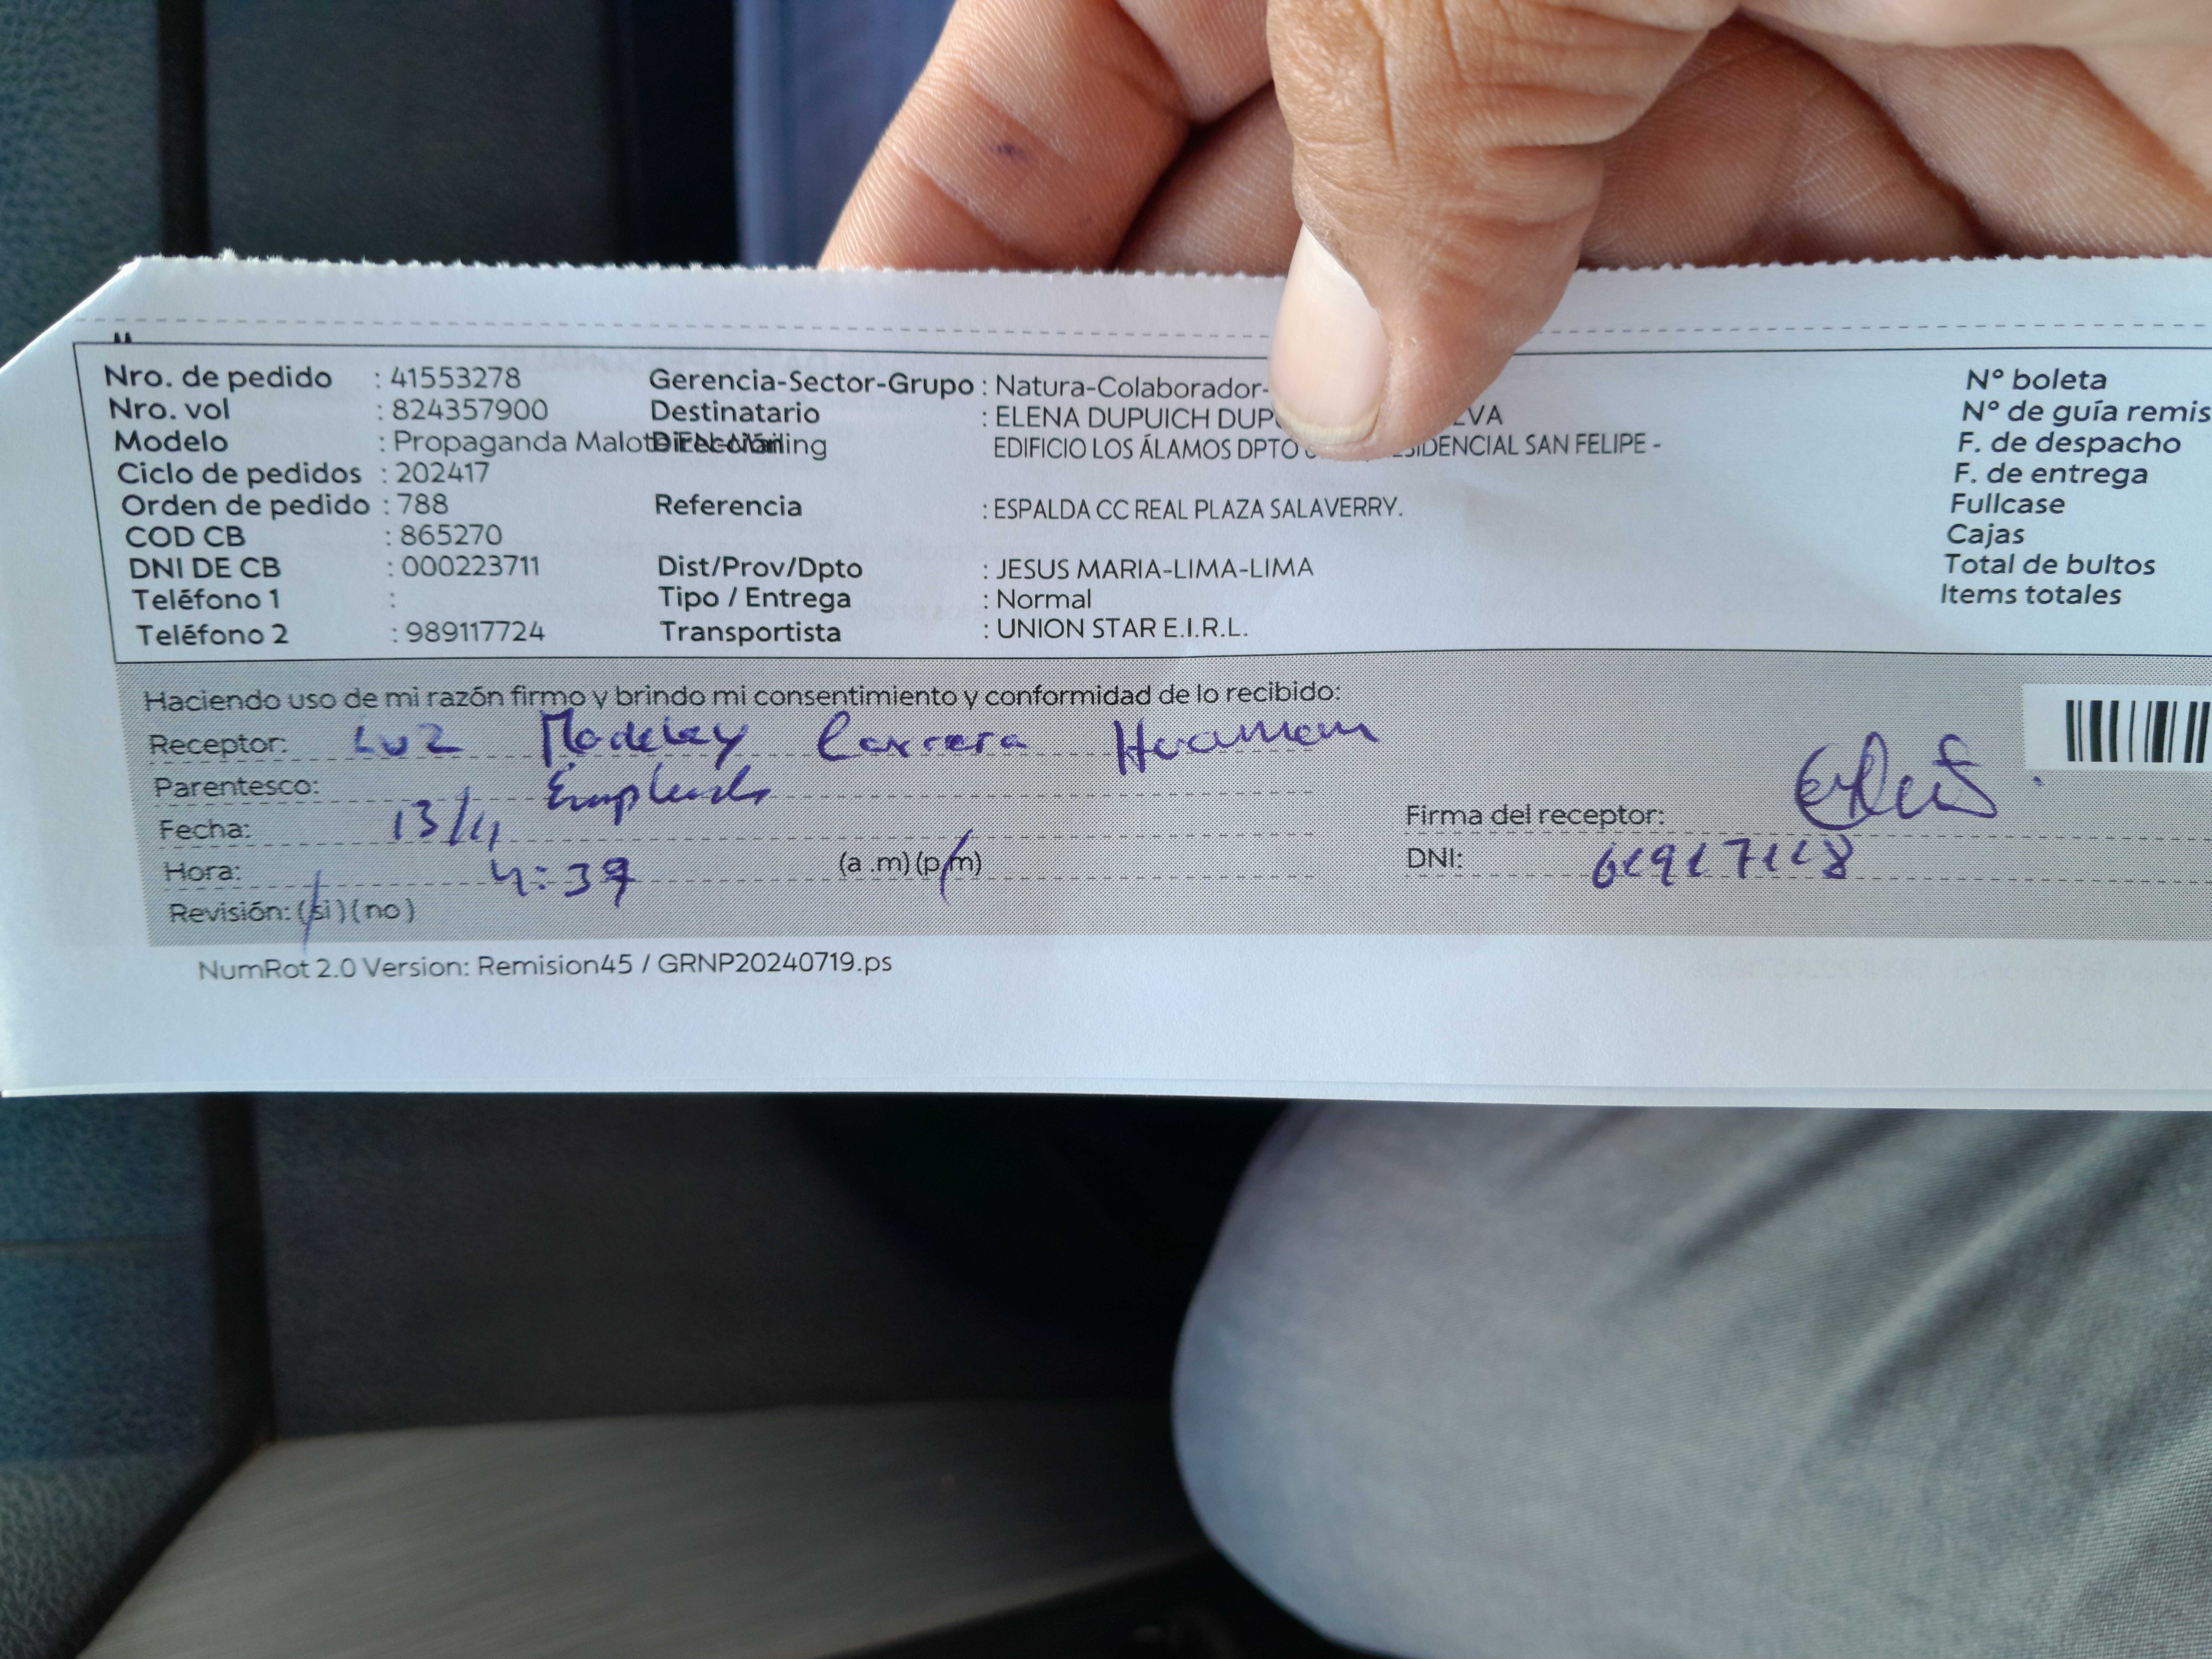 Nro. de pedido : 41553278 Gerencia-Sector-Grupo : Natura-Colaborador- N° boleta
Nro. vol : 824357900 Destinatario : ELENA DUPUICH N° de guía remis
Modelo : Propaganda Dirección EDIFICIO LOS ÁLAMOS DPTO SAN FELIPE - F. de despacho
Ciclo de pedidos : 202417 F. de entrega
Orden de pedido : 788 Referencia : ESPALDA CC REAL PLAZA SALAVERRY. Fullcase
COD CB : 865270 Cajas
DNI DE CB : 000223711 Dist/Prov/Dpto : JESUS MARIA-LIMA-LIMA Total de bultos
Teléfono 1 : Tipo / Entrega : Normal Items totales
Teléfono 2 : 989117724 Transportista : UNION STAR E.I.R.L.
Haciendo uso de mi razón firmo y brindo mi consentimiento y conformidad de lo recibido:
Receptor: Luz Carrera Huaman
Parentesco:
Fecha: 13/11 Firma del receptor:
Hora: 4:39 (a .m) (p.m) DNI:
Revisión: (si) (no)
NumRot 2.0 Version: Remision45 / GRNP20240719.ps